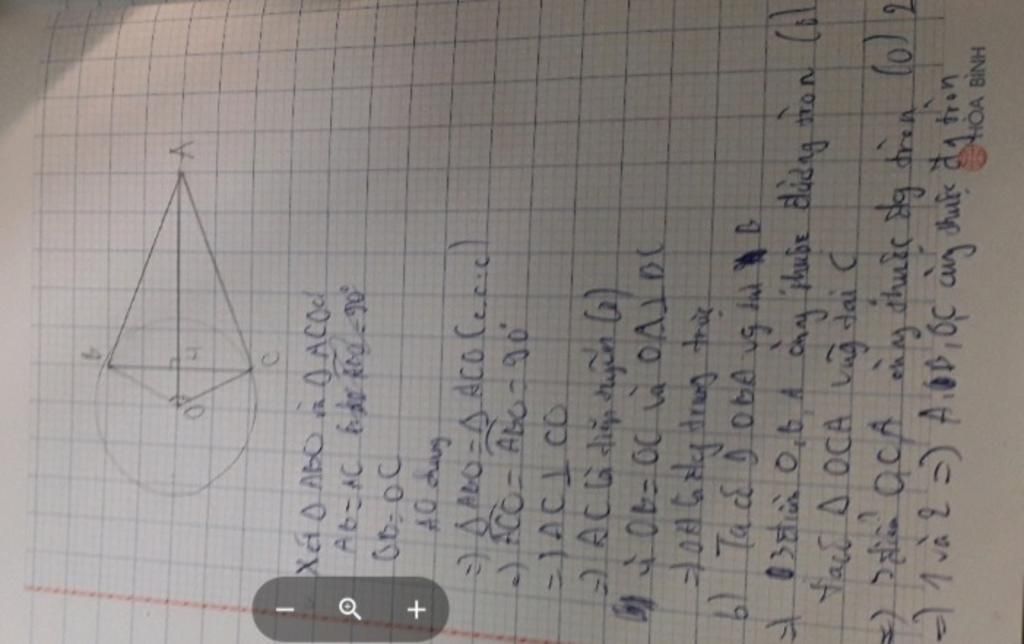 B
A
O
H
C
Xét Δ ABO và Δ ACO có
AB = AC
OB = OC
AO chung
=) Δ ABO = Δ ACO (c.c.c)
=) ACO = ABO = 90°
=) AC ⊥ CO
=) AC là tiếp tuyến (O)
Vì OB = OC và OA ⊥ BC
=) OA là đg trung trực
b) Ta có Δ OBA vg tại B
=) 3 điểm O, B, A cùng thuộc đường tròn (1)
Ta có Δ OCA vuông tại C
=) 3 điểm O C A cùng thuộc đg tròn (O) 2
=) 1 và 2 =) A, B, O, C cùng thuộc đg tròn
HÒA BÌNH